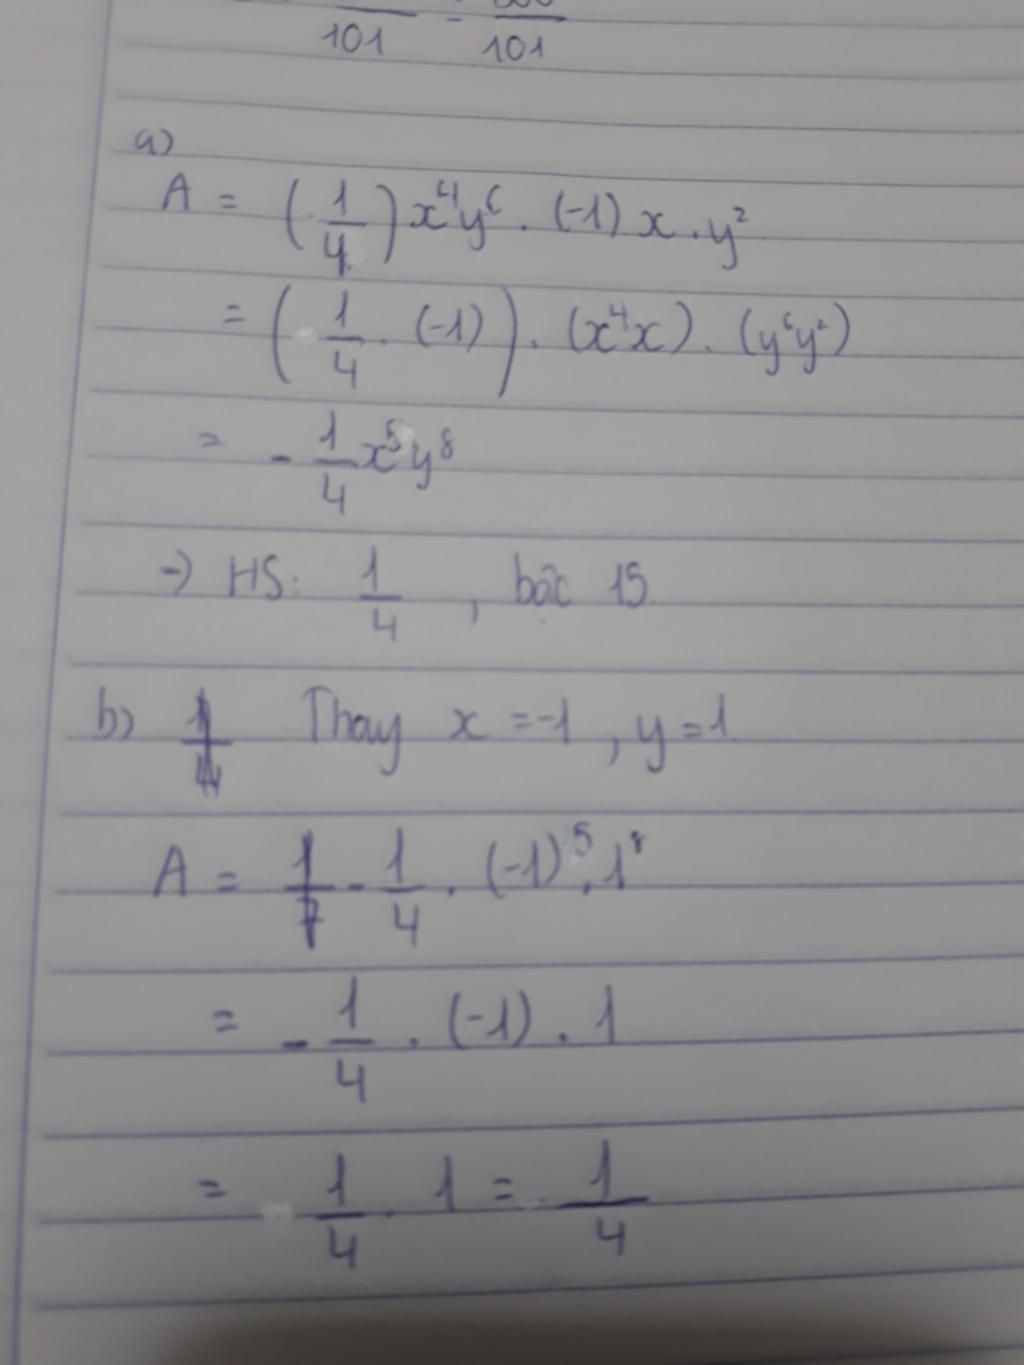 101 - 101
a)
A = (1/4)x⁴y⁶ . (-1)x . y²
= (1/4 . (-1)) . (x⁴x) . (y⁶y²)
= - 1/4 x⁵y⁸
→ HS: 1/4 , bậc 15
b) Thay x = -1 , y = 1
A = - 1/4 . (-1)⁵ . 1⁸
= - 1/4 . (-1) . 1
= 1/4 . 1 = 1/4